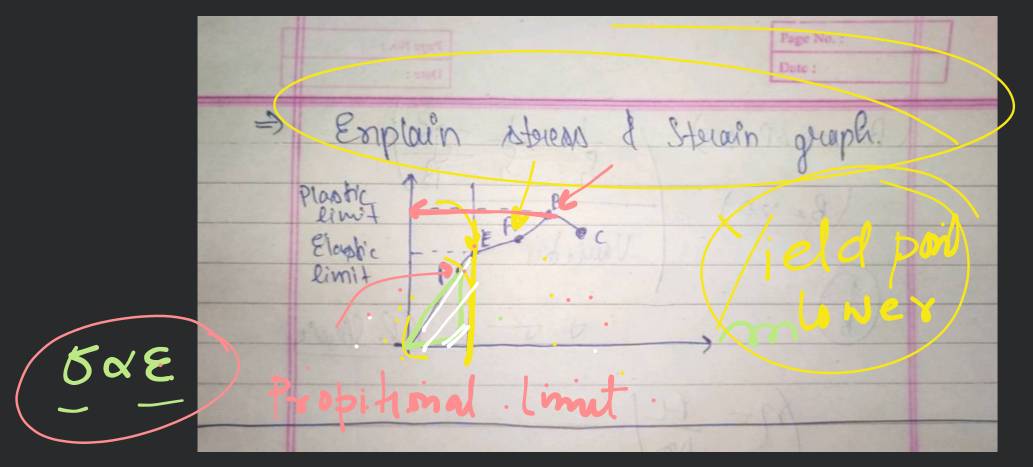 Page No. :
Date :
⇒ Explain stress & Strain graph.
Plastic
limit
B
E
C
Elastic
limit
P
Yield point
lower
σ ∝ ε
Propitional . Limit